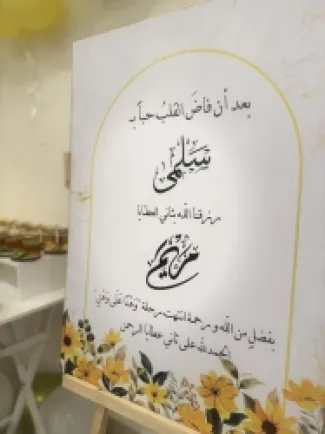 بعد أن فاضَ القلبُ حباً بـ
سَلمى
رزقنا الله بثاني العطايا
مريم
بفضلٍ من الله و رحمة انتهت مرحلة "وَهْناً عَلَى وَهْنٍ"
الحمد لله على ثاني عطايا الرحمن